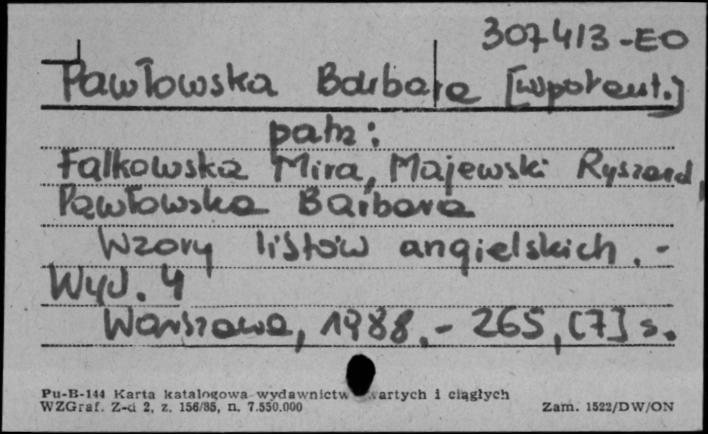 307413-EO
Pawłowska Barbara [współaut.]
patrz:
Falkowska Mira, Majewski Ryszard,
Pawłowska Barbara
Wzory listów angielskich. -
Wyd. 4
Warszawa, 1988. - 265, [7] s.
Pu-B-144 Karta katalogowa wydawnictw zwartych i ciągłych
WZGraf. Z-d 2, z. 156/85, n. 7.550.000
Zam. 1522/DW/ON